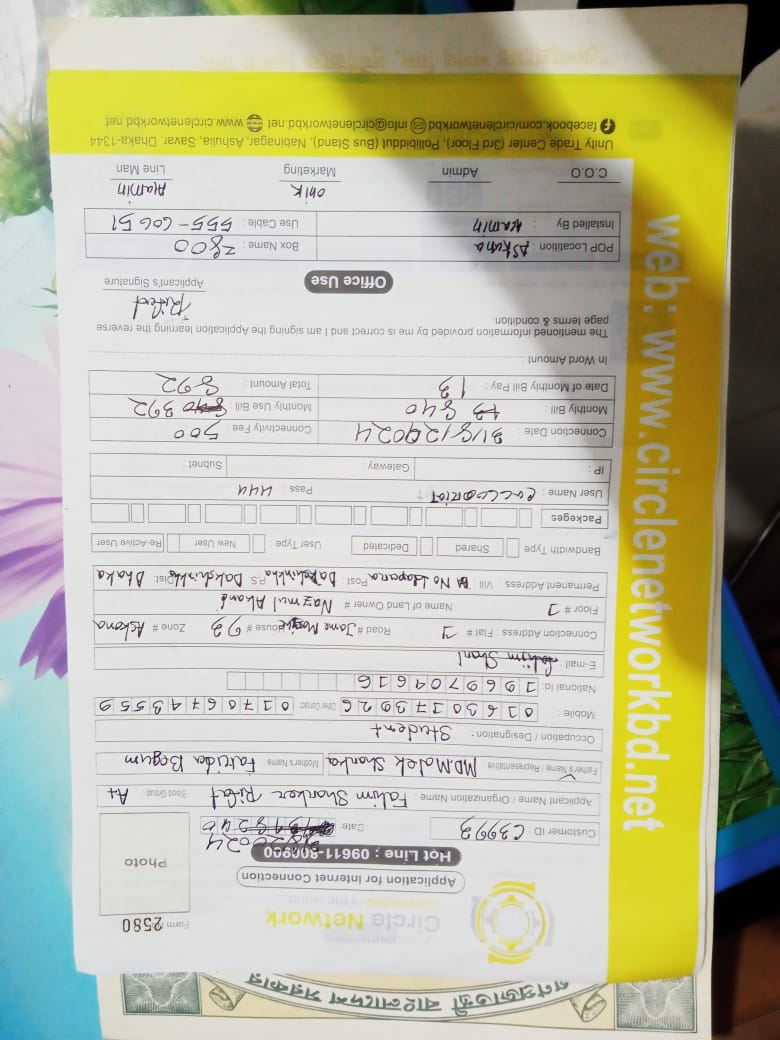 গণপ্রজাতন্ত্রী বাংলাদেশ সরকার
Circle Network
Form 2580
Application for Internet Connection
Hot Line : 09611-800900
Photo
Customer ID : C3993
Date :
Applicant Name / Organization Name : Fahim Sharker Rifat Blood Group A+
Father's Name / Representative MD. Malek Sharka Mother's Name Farida Begum
Occupation / Designation : Student
Mobile : 01630173926 Other Contact 01706743559
National Id 1969704616
E-mail :
Connection Address : Flat # 1 Road # Jame House # 93 Zone # Askona
Floor # 1 Name of Land Owner # Nazmul Ahand
Permanent Address : Vill : No Post : Dakshinkha P.S. Dakshinkha Dist: Dhaka
Bandwidth Type Shared Dedicated User Type : New User Re-Active User
Packeges
User Name : Pass : 444
IP : Gateway : Subnet :
Connection Date : Connectivity Fee : 500
Monthly Bill : 840 Monthly Use Bill 392
Date of Monthly Bill Pay : 13 Total Amount : 892
In Word Amount :
The mentioned information provided by me is correct and I am signing the Application learning the reverse
page terms & condition.
Rifat
Applicant's Signature
Office Use
POP Locatition : Askona Box Name : 2800
Installed By : Alamin Use Cable : 555-60651
onik Alamin
C.O.O Admin Marketing Line Man
Unity Trade Center (3rd Floor), Pollibiddut (Bus Stand), Nabinagar, Ashulia, Savar, Dhaka-1344
facebook.com/circlenetworkbd info@circlenetworkbd.net www.circlenetworkbd.net
web: www.circlenetworkbd.net